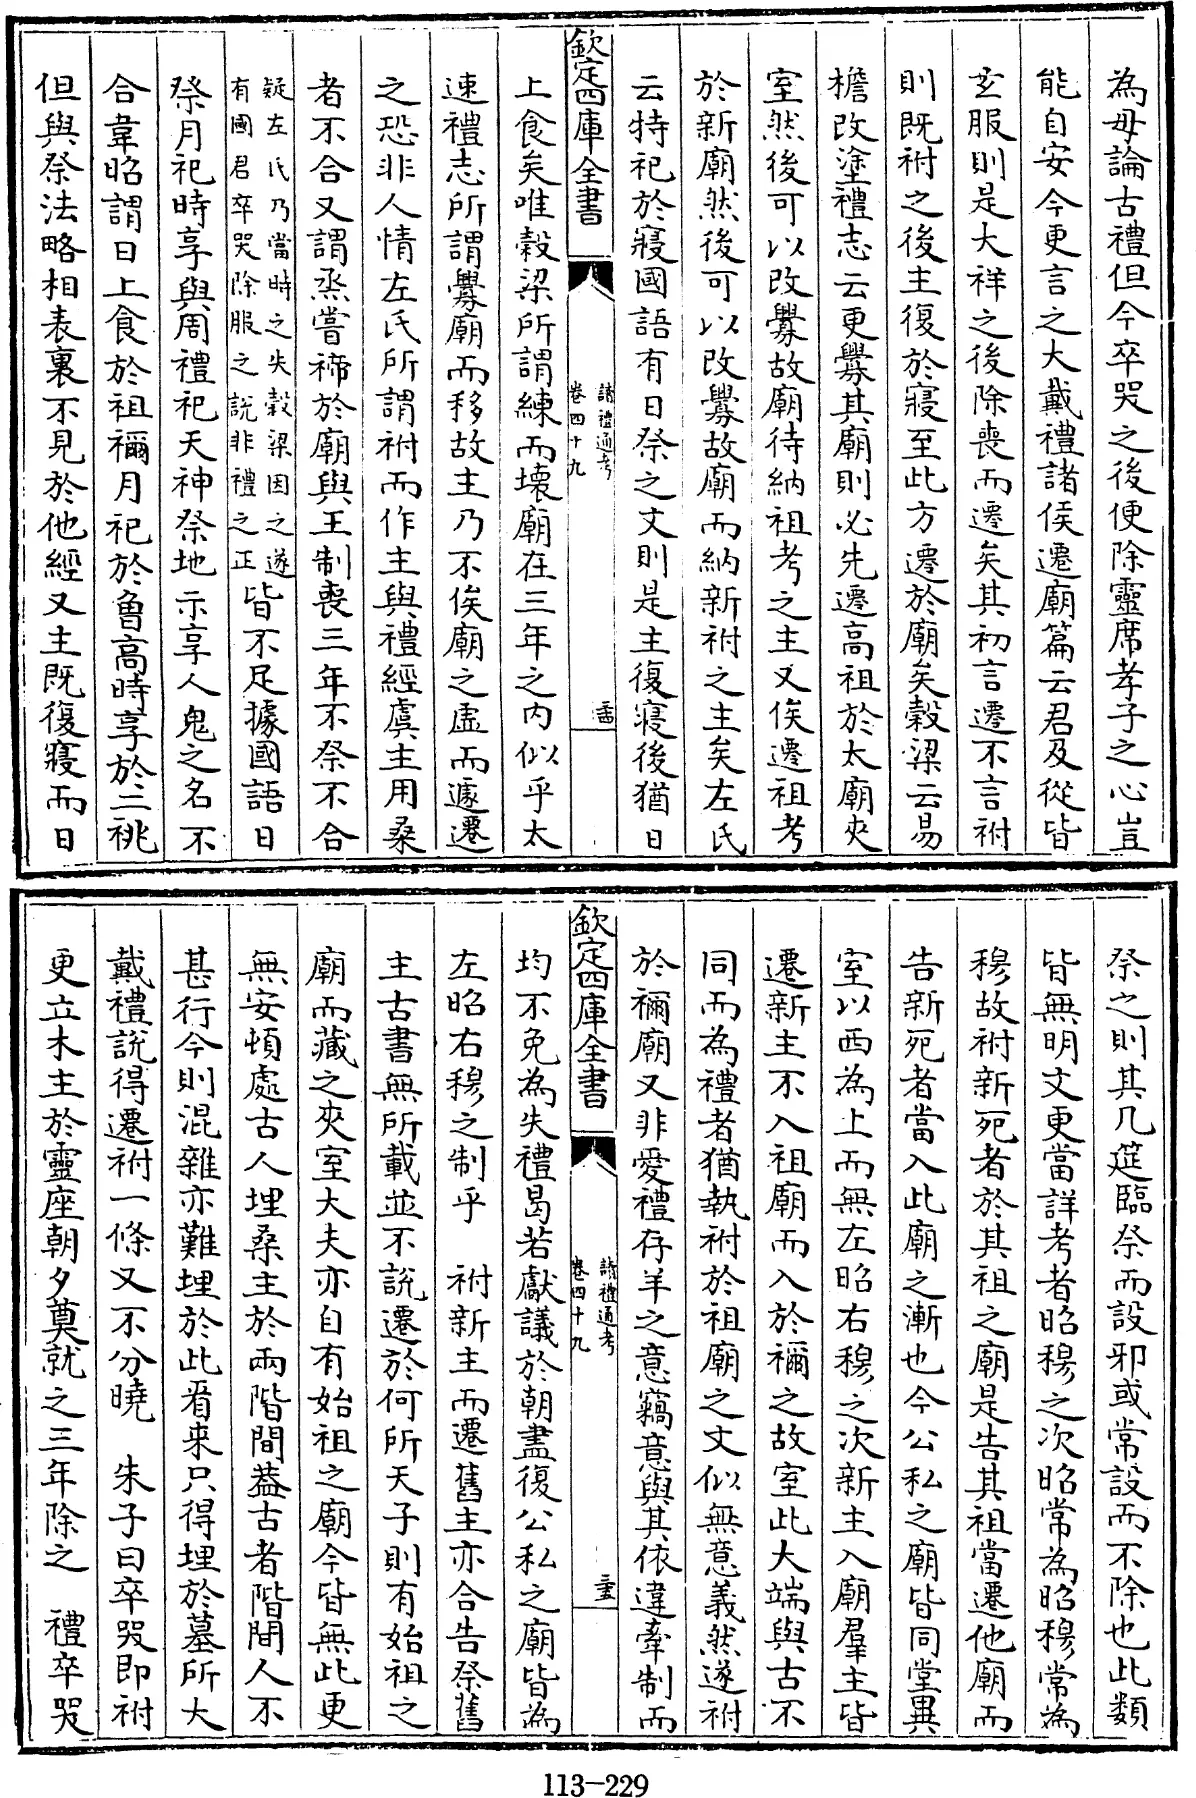 為毋論古禮但今卒哭之後便除靈席孝子之心豈
能自安今更言之大戴禮諸侯遷廟篇云君及從皆
玄服則是大祥之後除喪而遷矣其初言遷不言祔
則既祔之後主復於寢至此方遷於廟矣榖梁云易
檐改塗禮志云更釁其廟則必先遷高祖於太廟夾
室然後可以改釁故廟待納祖考之主又俟遷祖考
於新廟然後可以改釁故廟而納新祔之主矣左氏
云特祀於寢國語有日祭之文則是主復寢後猶日
欽定四庫全書
讀禮通考
卷四十九
上食矣唯榖梁所謂練而壞廟在三年之内似乎太
速禮志所謂釁廟而移故主乃不俟廟之虛而遽遷
之恐非人情左氏所謂祔而作主與禮經虞主用桑
者不合又謂烝嘗禘於廟與王制喪三年不祭不合
疑左氏乃當時之失榖梁因之遂
有國君卒哭除服之説非禮之正
皆不足據國語日
祭月祀時享與周禮祀天神祭地示享人鬼之名不
合韋昭謂日上食於祖禰月祀於曽高時享於二祧
但與祭法略相表裏不見於他經又主既復寢而日
祭之則其几筵臨祭而設邪或常設而不除也此類
皆無明文更當詳考者昭穆之次昭常為昭穆常為
穆故祔新死者於其祖之廟是告其祖當遷他廟而
告新死者當入此廟之漸也今公私之廟皆同堂異
室以西為上而無左昭右穆之次新主入廟羣主皆
遷新主不入祖廟而入於禰之故室此大端與古不
同而為禮者猶執祔於祖廟之文似無意義然遂祔
於禰廟又非愛禮存羊之意竊意與其依違牽制而
欽定四庫全書
讀禮通考
卷四十九
均不免為失禮曷若獻議於朝盡復公私之廟皆為
左昭右穆之制乎　祔新主而遷舊主亦合告祭舊
主古書無所載並不說遷於何所天子則有始祖之
廟而藏之夾室大夫亦自有始祖之廟今皆無此更
無安頓處古人埋桑主於兩階間葢古者階間人不
甚行今則混雜亦難埋於此看来只得埋於墓所大
戴禮說得遷祔一條又不分曉　朱子曰卒哭即祔
更立木主於靈座朝夕奠就之三年除之　禮卒哭
113-229